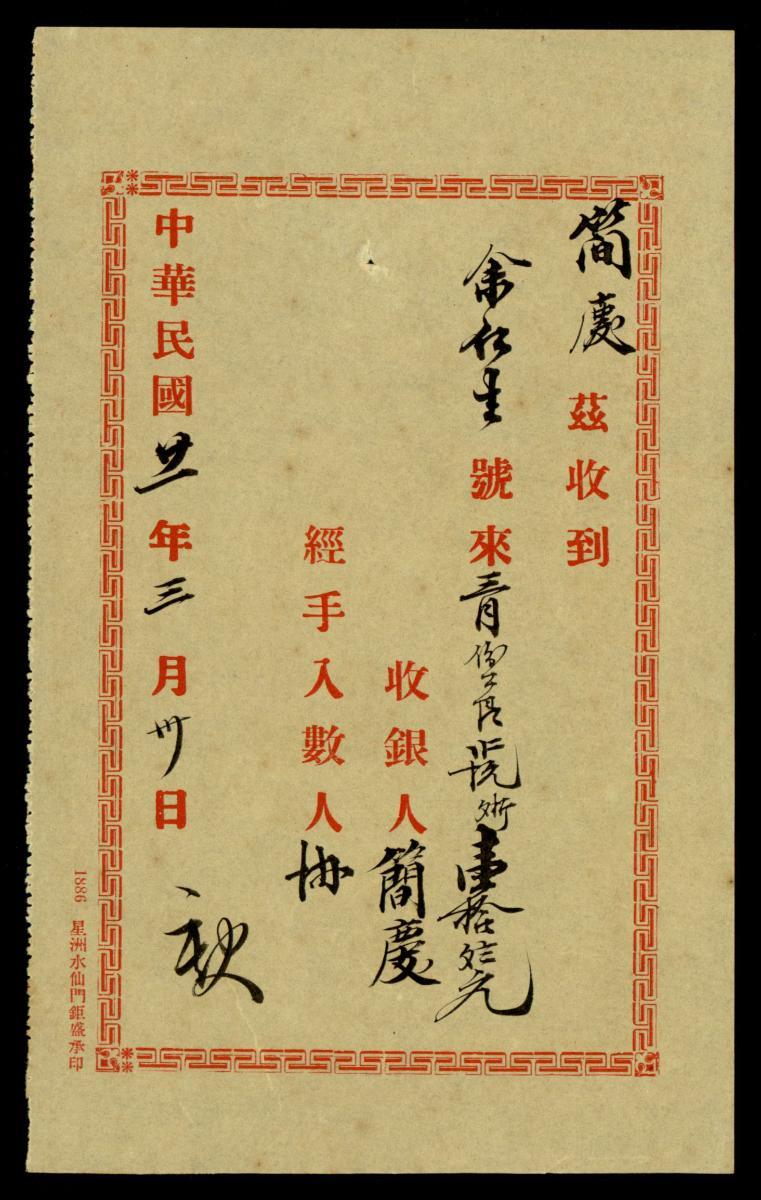 簡慶茲收到
余仁生號來三月份
壹拾元
收銀人簡慶
經手入數人
中華民國廿一年三月卅日
1886 星洲水仙門鉅盛承印